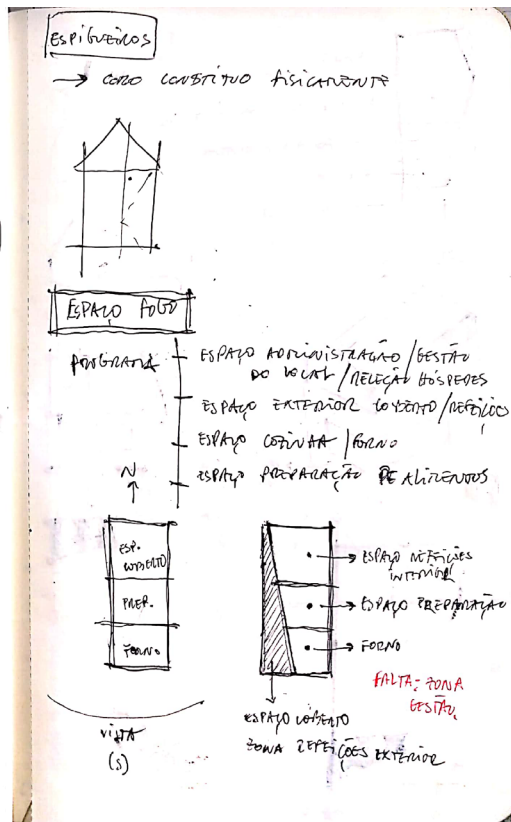 ESPIGUEIROS
→ COMO CONSTITUO FISICAMENTE
ESPAÇO FOGO
PROGRAMA
ESPAÇO ADMINISTRAÇÃO/GESTÃO
DO LOCAL/RELEÇÃO HÓSPEDES
ESPAÇO EXTERIOR COBERTO/REFEIÇÕES
ESPAÇO COZINHA/FORNO
ESPAÇO PREPARAÇÃO DE ALIMENTOS
N
ESP.
COBERTO
PREP.
FORNO
VISTA
(S)
→ ESPAÇO REFEIÇÕES
INTERIOR
→ ESPAÇO PREPARAÇÃO
→ FORNO
FALTA: ZONA
GESTÃO
ESPAÇO COBERTO
ZONA REFEIÇÕES EXTERIOR